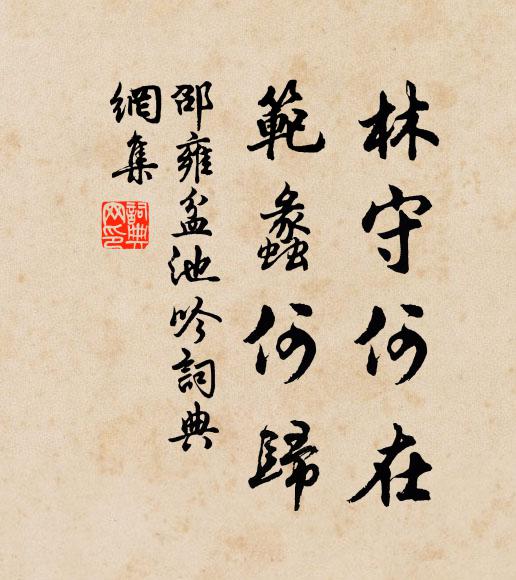 林守何在
範蠡何歸
邵雍盆池吟詞典
網集
詞典
網印